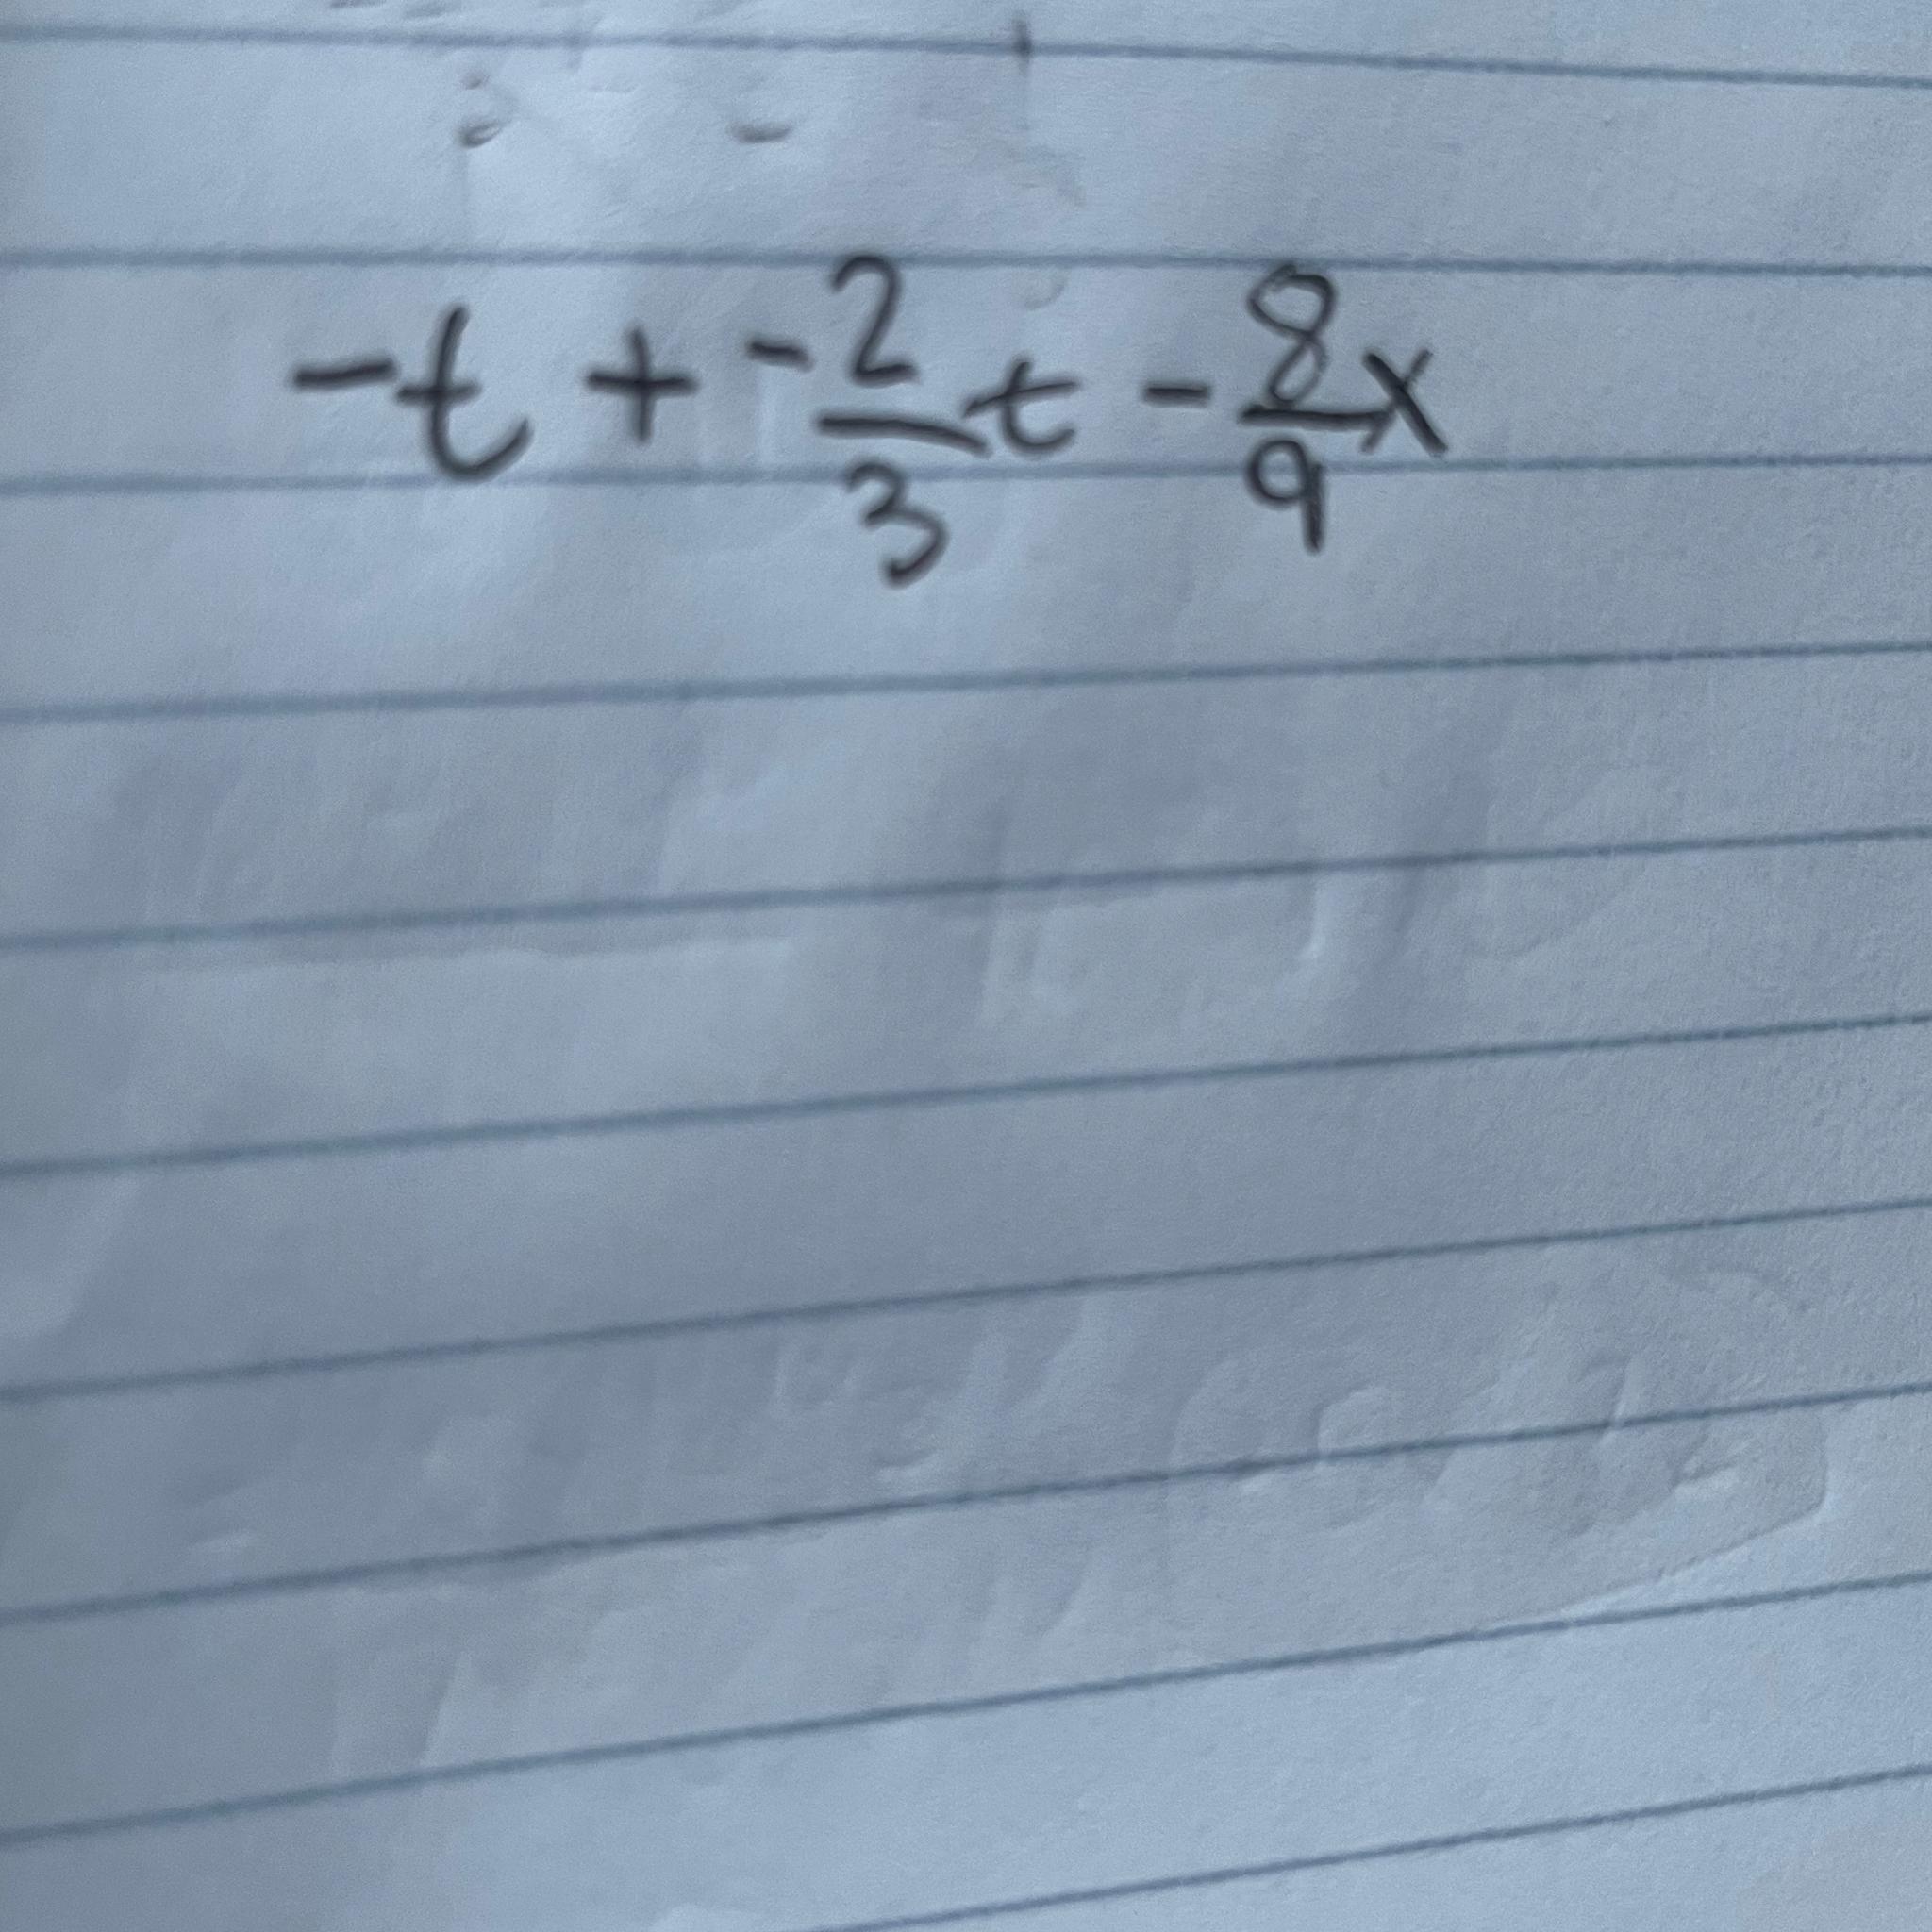 -t + -2/3 t - 8/9 x